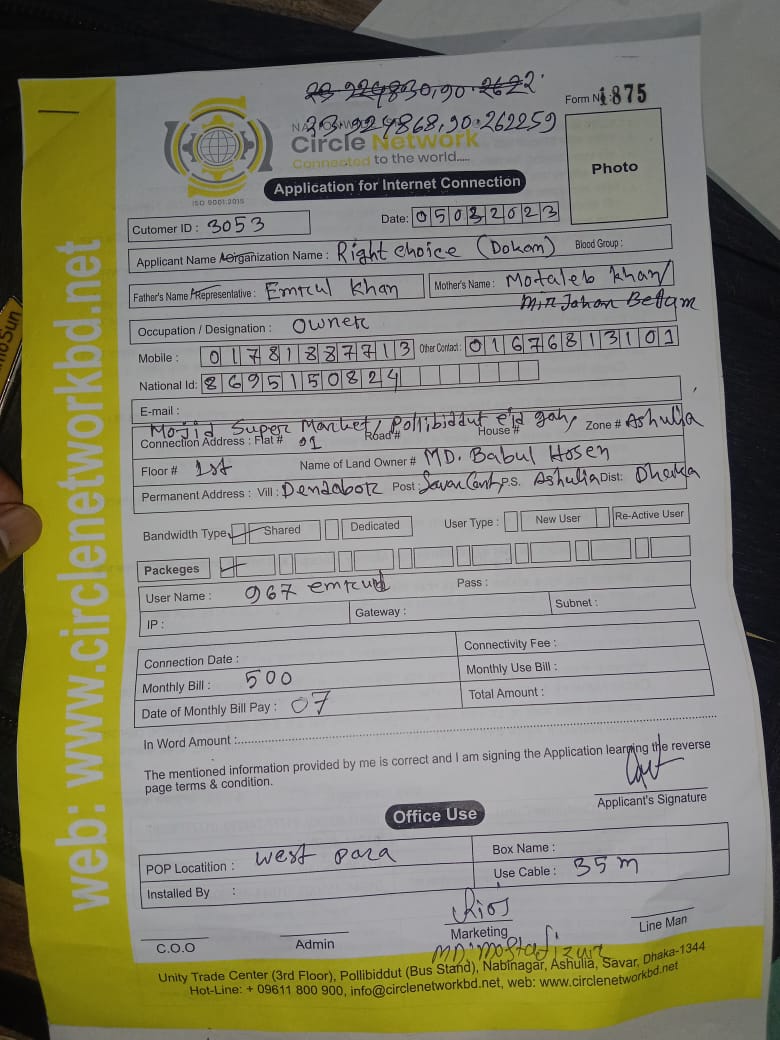 23.924868,90.262259
Form No 1875
Circle Network
Connected to the world.....
ISO 9001:2015
Photo
Application for Internet Connection
Cutomer ID : 3053
Date: 05032023
Applicant Name / Organization Name : Right choice (Dokan)
Blood Group :
Father's Name / Representative : Emrul Khan
Mother's Name : Motaleb Khan/
Occupation / Designation : Owner
Mobile : 01781887713 Other Contact : 01676813101
National Id: 8695150824
E-mail :
Mojid Super Market, Pollibiddut eid gah,
Connection Address : Flat # 01 Road # House # Zone # Ashulia
Floor # 1st Name of Land Owner # MD. Babul Hosen
Permanent Address : Vill : Dendabor Post : Savar Cant P.S. Ashulia Dist: Dhaka
Bandwidth Type Shared Dedicated User Type : New User Re-Active User
Packeges
User Name : 967 emrul Pass :
IP : Gateway : Subnet :
Connection Date : Connectivity Fee :
Monthly Bill : 500 Monthly Use Bill :
Date of Monthly Bill Pay : 07 Total Amount :
In Word Amount :
The mentioned information provided by me is correct and I am signing the Application learning the reverse
page terms & condition.
Applicant's Signature
Office Use
POP Locatition : West para Box Name :
Installed By : Use Cable : 35 m
C.O.O Admin Marketing Line Man
MD. Mostafizur
Unity Trade Center (3rd Floor), Pollibiddut (Bus Stand), Nabinagar, Ashulia, Savar, Dhaka-1344
Hot-Line: + 09611 800 900, info@circlenetworkbd.net, web: www.circlenetworkbd.net
web: www.circlenetworkbd.net